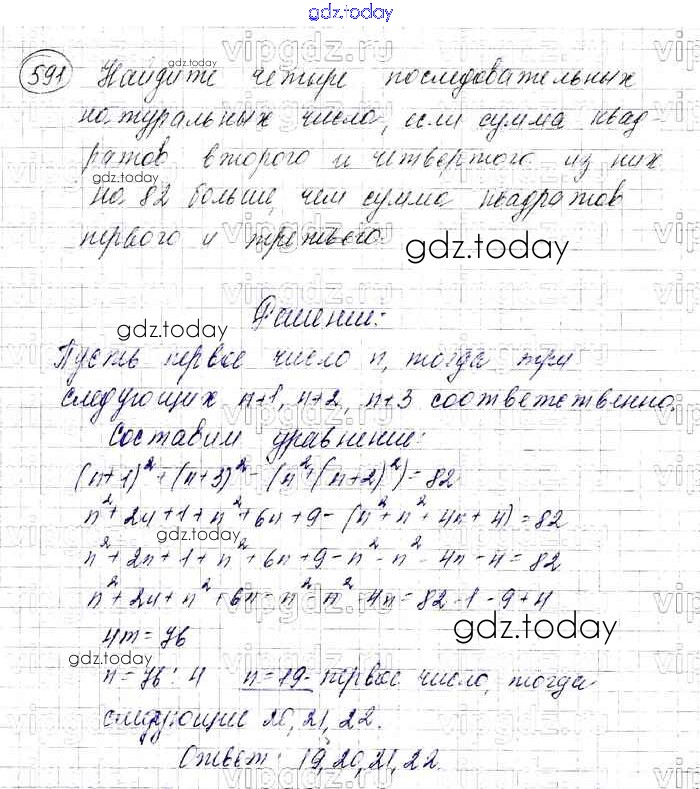 gdz.today
591 Найдите четыре последовательных
натуральных числа, если сумма квад-
ратов второго и четвертого из них
на 82 больше, чем сумма квадратов
первого и третьего.
Решение:
Пусть первое число n, тогда три
следующих n+1, n+2, n+3 соответственно.
Составим уравнение:
(n+1)²+(n+3)²-(n²+(n+2)²)=82
n²+2n+1+n²+6n+9-(n²+n²+4n+4)=82
n²+2n+1+n²+6n+9-n²-n²-4n-4=82
n²+2n+n²+6n-n²-n²-4n=82-1-9+4
4n=76
n=76:4 n=19- первое число, тогда
следующие 20,21,22.
Ответ: 19,20,21,22.